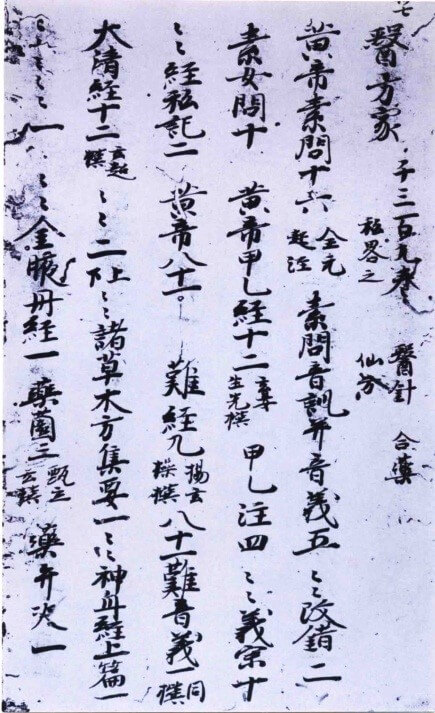 七
醫方家 千三百九巻 私畧之 醫針 仙方 合藥
黄帝素問十六 全元起注 素問音訓并音義五 〻〻改錯二
素女問十 黄帝甲乙経十二 玄晏先生撰 甲乙注四 〻〻義宗十
〻〻経私記二 黄帝八十一難経九 楊玄操撰 八十一難音義一 同撰
大清経十二 玄超撰 〻〻二上 〻〻諸草木方集要一 〻〻神丹経上篇一
〻〻〻〻一 〻〻金腋丹経一 藥薗三 甄立言撰 藥弁决一